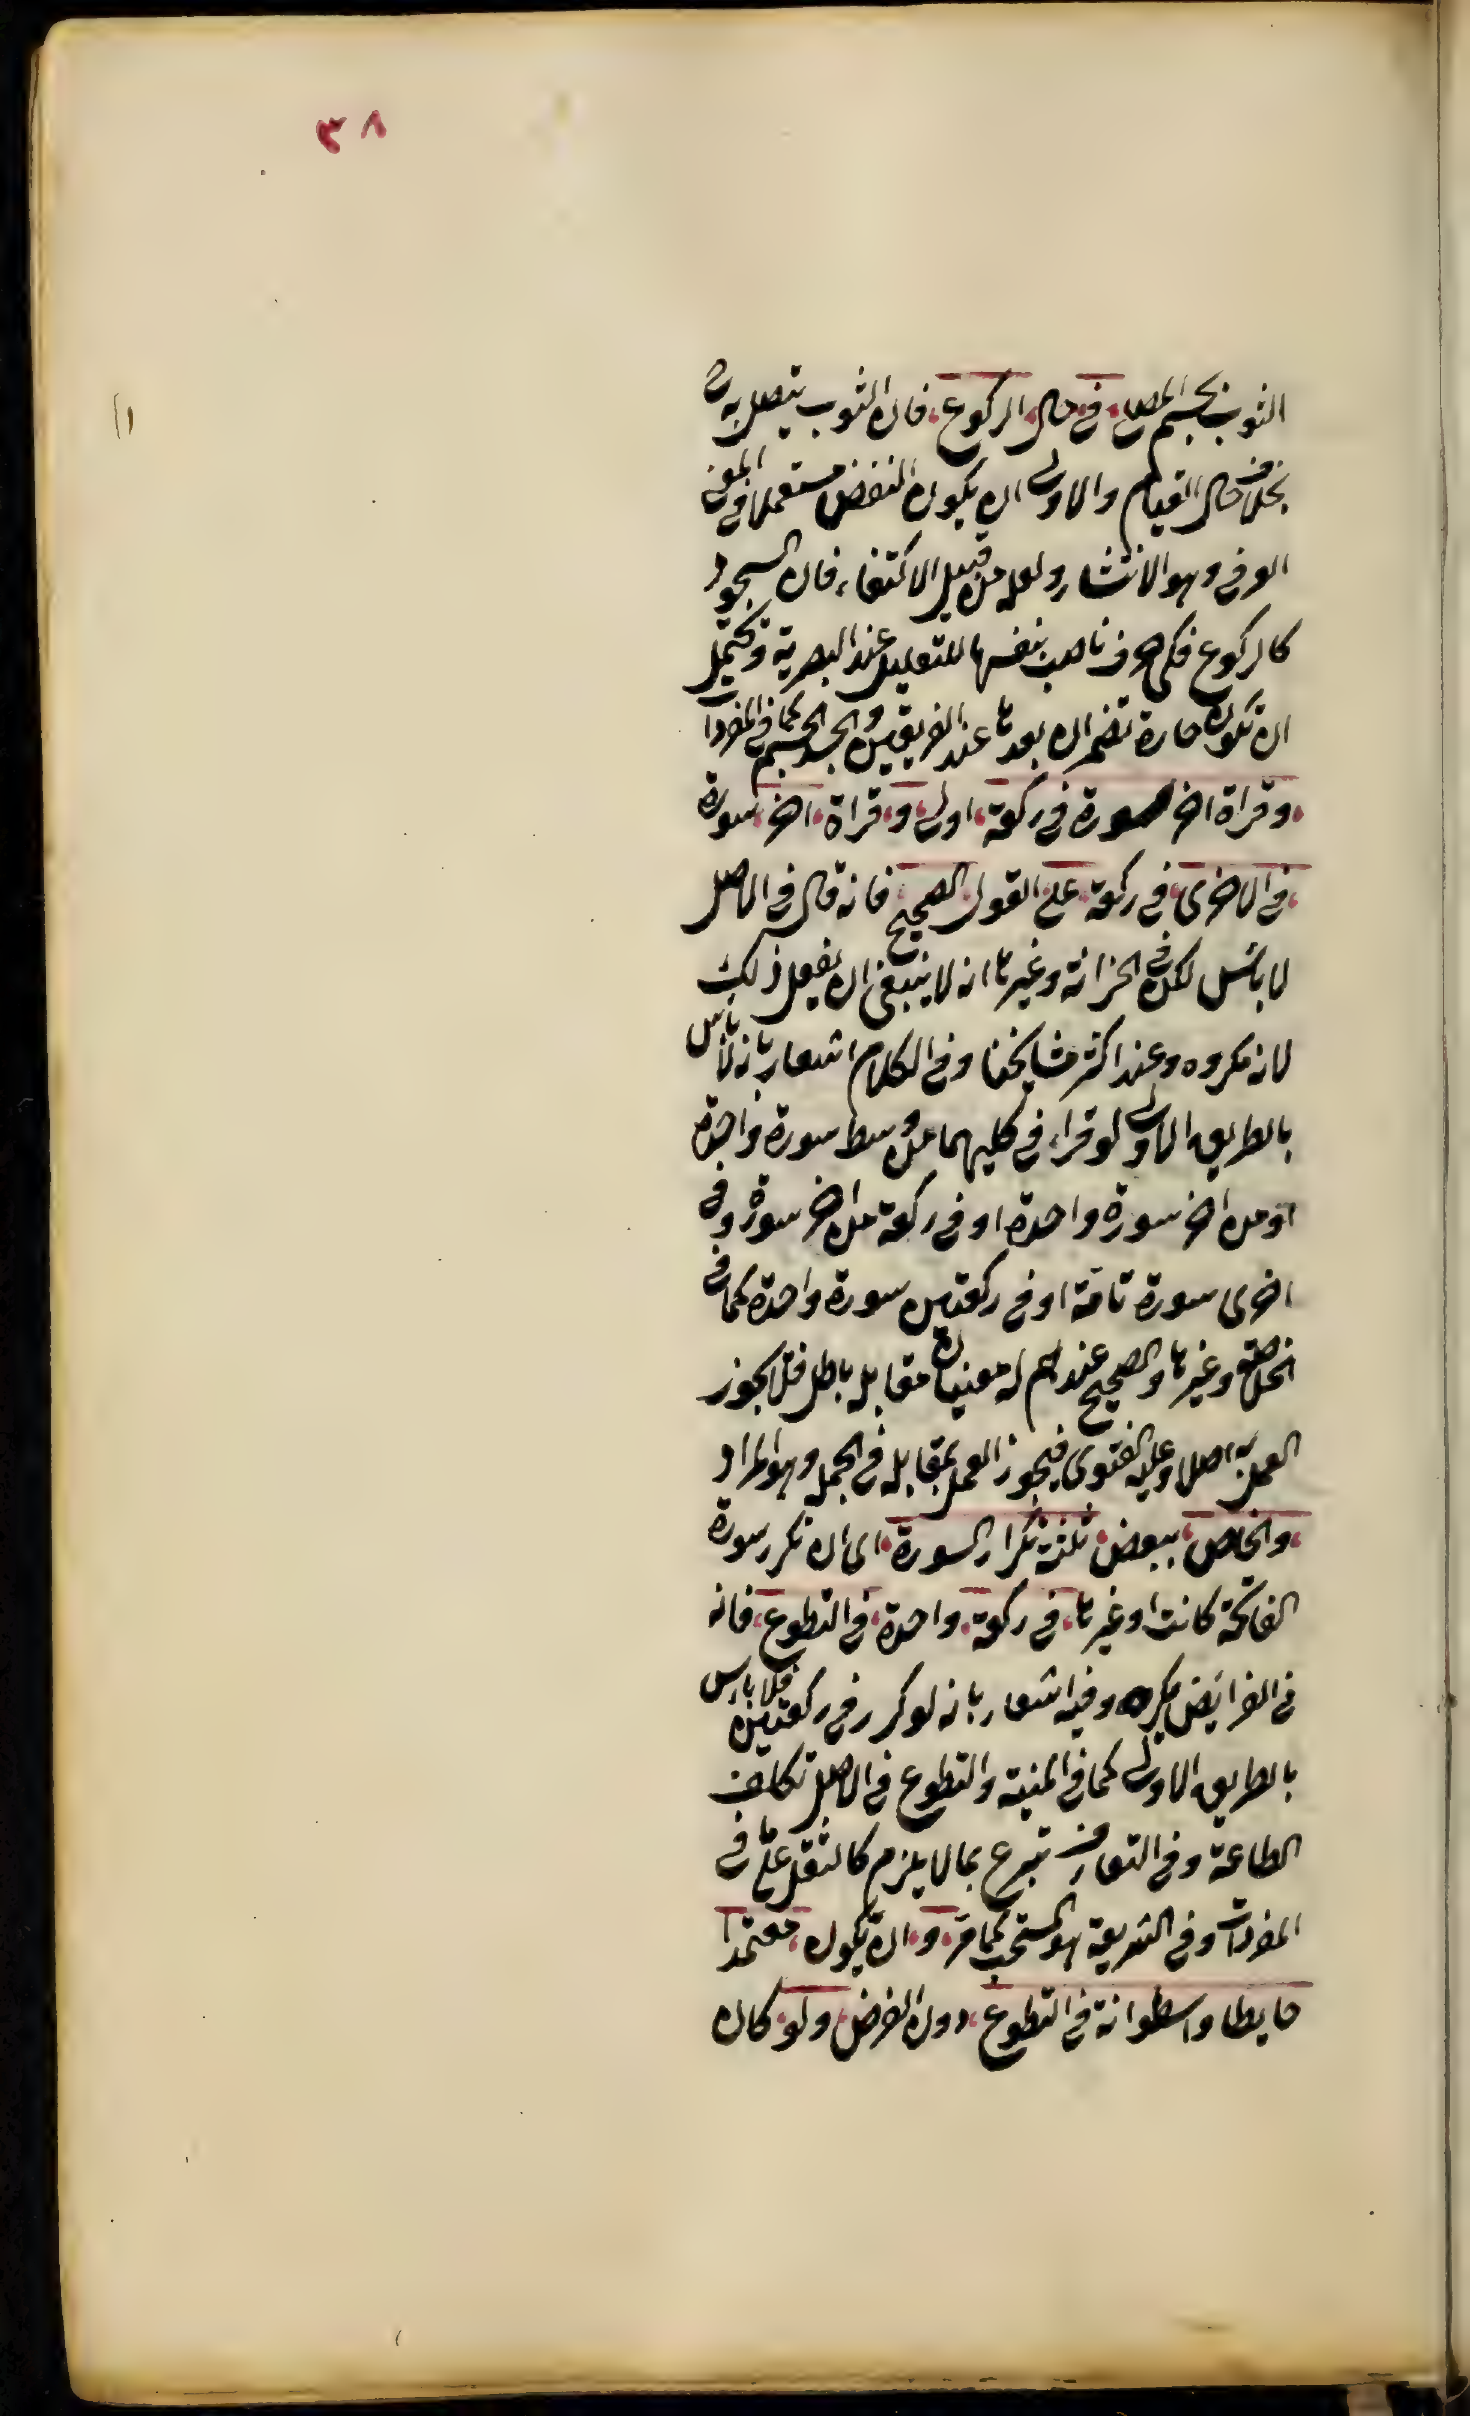 ٣٨
الثوب بجسم المصلي في حال الركوع فان الثوب يتصل به ح
بخلاف حال القيام والاولى ان يكون النفض مستعملا في المعنى
العرفي وهو الانتشار ولعله من قبيل الاكتفاء فان السجود
كالركوع فكي حرف ناصب بنفسها للتعليل عند البصرية وتحتمل
ان تكون جارة تضمر ان بعدها عند الفريقين والجسد الجسم كما في المفردات
وقراة اخر سورة في ركعة اولى وقراة اخر سورة
في الاخرى في ركعة على القول الصحيح فانه قال في الاصل
لا باس لكن في الخزانة وغيرها انه لا ينبغي ان يفعل ذلك
لانه مكروه وعند اكثر مشايخنا وفي الكلام اشعار بانه لا باس
بالطريق الاولى لو قراء في كليهما من وسط سورة واحدة
او من اخر سورة واحدة او في ركعة من اخر سورة وفي
اخرى سورة تامة او في ركعتين سورة واحدة كما في
الخلاصة وغيرها والصحيح عندهم له معنيان مقابله باطل فلا يجوز
العمل به اصلا وعليه الفتوى فيجوز العمل بمقابله في الجملة وهو المراد
والخاص ببعض ثلثة تكرار السورة اى ان تكرر سورة
الفاتحة كانت او غيرها في ركعة واحدة في التطوع فانه
في الفرايض يكره وفيه اشعار بانه لو كرر في ركعتين فلا باس
بالطريق الاولى كما في المنية والتطوع في الاصل تكلف
الطاعة وفي التعارف تبرع بما لا يلزم كالتنفل على ما في
المفردات وفي الشريعة هو المستحب كما مر وان يكون معتمدا
حايطا واسطوانة في التطوع دون الفرض ولو كان